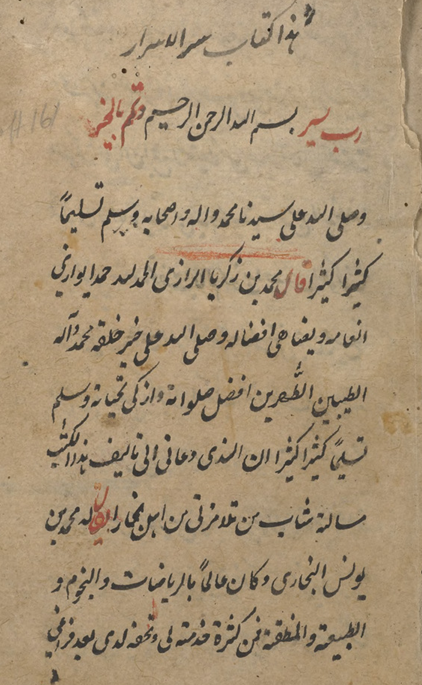 هذا كتاب سر الاسرار
رب يسر بسم الله الرحمن الرحيم وتمم بالخير
وصلى الله على سيدنا محمد واله واصحابه وسلم تسليماً
كثيرا كثيرا قال محمد بن زكريا الرازى الحمد لله حمدا يوازي
انعامه ويضاهى افضاله وصلى الله على خير خلقه محمد وآله
الطيبين الطهرين افضل صلواته وازكى تحياته وسلم
تسليماً كثيرا كثيرا ان الذى دعانى الى تاليف هذا الكتب
مسالة شاب من تلامزتى من اهل بخارا يقال له محمد بن
يونس البخارى وكان عالماً بالرياضات والنجوم و
الطبيعة والمنطقية فمن كثرة خدمته لى وتحفه لدى بعد فراغي